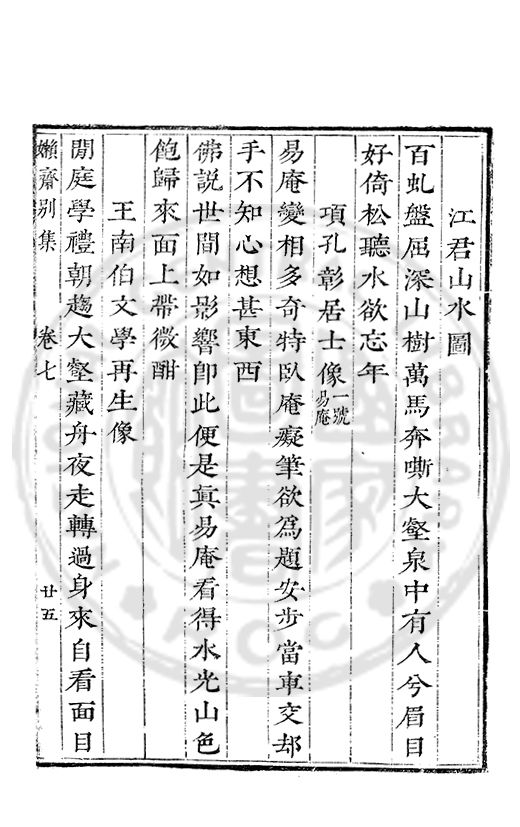 江君山水圖
百虬盤屈深山樹萬馬奔嘶大壑泉中有人兮眉目
好倚松聽水欲忘年
項孔彰居士像一號易庵
易庵變相多奇特臥庵癡筆欲爲題安步當車交却
手不知心想甚東西
佛說世間如影響卽此便是眞易庵看得水光山色
飽歸來面上帶微酣
王南伯文學再生像
閒庭學禮朝趨大壑藏舟夜走轉過身來自看面目
嬾齋別集
卷七
廿五